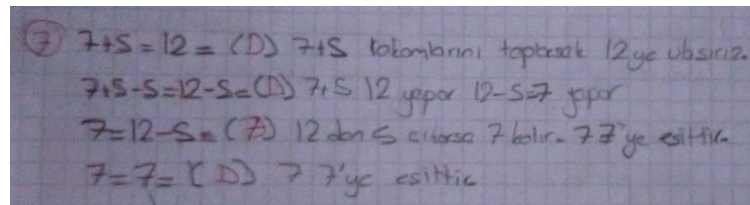 7 7+5 = 12 = (D) 7+5 rakamlarını toplarsak 12 ye ulaşırız.
7+5-5=12-5=(D) 7+5 12 yapar 12-5=7 yapar
7=12-5= (7) 12 den 5 çıkarsa 7 kalır. 7 7'ye eşittir.
7=7= (D) 7 7'ye eşittir